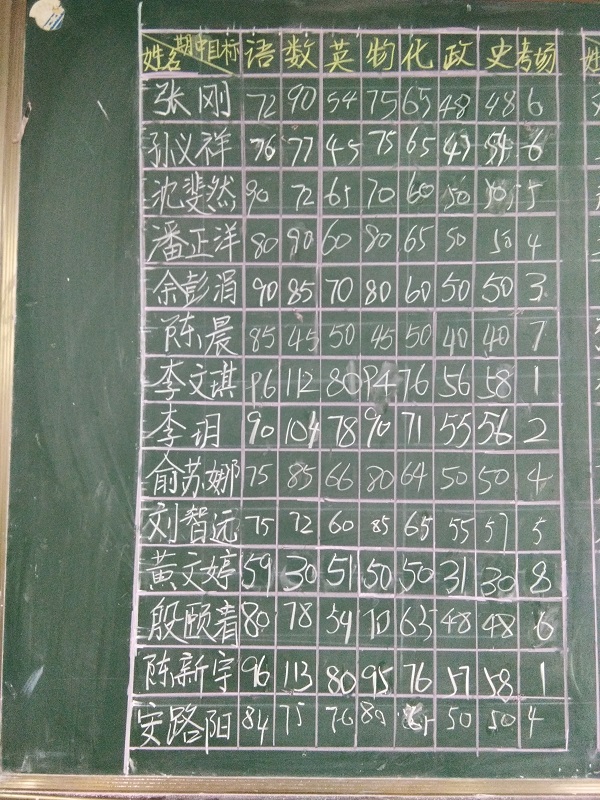 姓名 期中目标 语 数 英 物 化 政 史 考场 姓
张刚 72 90 54 75 65 48 48 6
孙义祥 76 77 45 75 65 47 6
沈斐然 90 72 65 70 60 50 50 5
潘正洋 80 90 60 80 65 50 50 4
余彭涓 90 85 70 80 60 50 50 3
陈晨 85 45 50 45 50 40 40 7
李文琪 96 112 80 94 76 56 58 1
李玥 90 104 78 90 71 55 56 2
俞苏娜 75 85 66 80 64 50 50 4
刘智远 75 72 60 85 65 55 57 5
黄文婷 59 30 51 50 50 31 30 8
殷颐着 80 78 59 70 65 48 48 6
陈新宇 96 113 80 95 76 57 58 1
安路阳 84 75 70 80 65 50 50 4